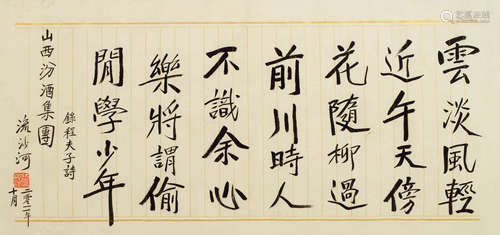 雲淡風輕
近午天傍
花隨柳過
前川時人
不識余心
樂將謂偷
閒學少年
錄程夫子詩
山西汾酒集團
流沙河
二零一一年
十月